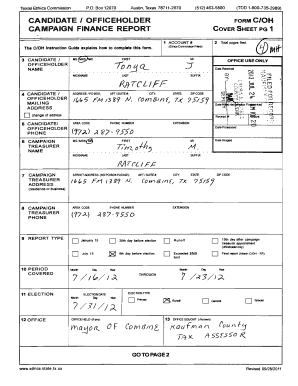 Texas Ethics Commission P.O. Box 12070 Austin, Texas 78711-2070 (512) 463-5800 (TDD 1-800-735-2989)
CANDIDATE / OFFICEHOLDER FORM C/OH
CAMPAIGN FINANCE REPORT COVER SHEET PG 1
The C/OH Instruction Guide explains how to complete this form.
1 ACCOUNT #
2 Total pages filed:
3 CANDIDATE / OFFICEHOLDER NAME
FIRST MI
Tonya J
NICKNAME LAST SUFFIX
RATCLIFF
OFFICE USE ONLY
Date Received
4 CANDIDATE / OFFICEHOLDER MAILING ADDRESS
change of address
ADDRESS / PO BOX; APT / SUITE #; CITY; STATE; ZIP CODE
1665 FM 1389 N. Combine, TX 75159
5 CANDIDATE/ OFFICEHOLDER PHONE
AREA CODE PHONE NUMBER EXTENSION
(972) 287-9550
6 CAMPAIGN TREASURER NAME
FIRST MI
Timothy M.
NICKNAME LAST SUFFIX
RATCLIFF
Date Imaged
7 CAMPAIGN TREASURER ADDRESS
(residence or business)
1665 FM 1389 N. Combine, TX 75159
8 CAMPAIGN TREASURER PHONE
AREA CODE PHONE NUMBER EXTENSION
(972) 287-9550
9 REPORT TYPE
January 15 30th day before election Runoff 15th day after campaign treasurer appointment (officeholder only)
July 15 8th day before election Exceeded $500 limit Final report (Attach C/OH - FR)
10 PERIOD COVERED
Month Day Year THROUGH Month Day Year
7/16/12 7/23/12
11 ELECTION
ELECTION DATE ELECTION TYPE
Month Day Year
7/31/12
Primary Runoff General Special
12 OFFICE
OFFICE HELD (if any)
Mayor of Combine
13 OFFICE SOUGHT (if known)
Kaufman County
Tax Assessor
GO TO PAGE 2
www.ethics.state.tx.us Revised 09/28/2011